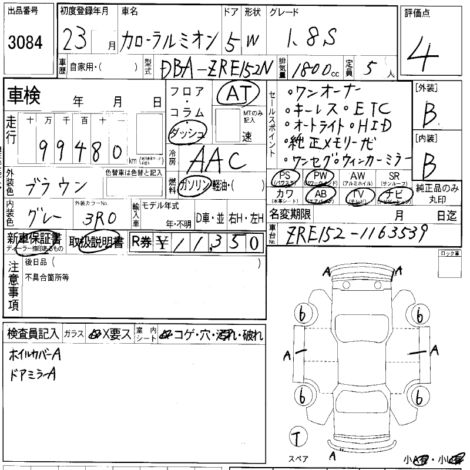 出品番号 初度登録年月 車名 ドア 形状 グレード 評価点
3084 23年 月 カローラルミオン 5 W 1.8S 4
車歴 自家用・( ) 型式 DBA-ZRE152N 排気量 1800cc 定員 5人
車検 年 月 日
フロア・コラム・ダッシュ AT MTのみ記入 速
セールスポイント
・ワンオーナー
・キーレス・ETC
・オートライト・HID
・純正メモリーナビ
・ワンセグ・ウィンカーミラー
[外装] B
[内装] B
走行 十万 万 千 百 十
99480 km
冷房 AAC
燃料 ガソリン 軽油・( )
外装色 ブラウン 色替車は色替と記入
内装色 グレー 外装カラーNo. 3R0
輸入車 モデル年式 年・不明 D車・並 右H・左H
PS (パワステ) PW (パワーウインド) AW (アルミホイル) SR (サンルーフ)
カワ (本革シート) AB (エアバッグ) TV (テレビ) ナビ
純正品のみ丸印
名変期限 月 日迄
新車保証書 ディーラー捺印あるもの 取扱説明書 R券 ¥11350
車台No. ZRE152-1163539
注意事項 後日品( )
不具合箇所等
ロック車
検査員記入 ガラス X要ス 室内シート コゲ・穴・汚れ・破れ
ホイルカバーA
ドアミラーA
A A
6 6
A A
6 6
T
スペア
A